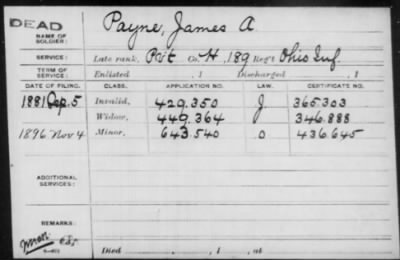 DEAD
NAME OF SOLDIER: Payne, James A.
SERVICE: Late rank, Pvt Co. H, 189 Reg't Ohio Inf.
TERM OF SERVICE: Enlisted , 1 Discharged , 1
DATE OF FILING. CLASS. APPLICATION NO. LAW. CERTIFICATE NO.
1881 Sep. 5 Invalid, 429.350 J. 365.303
Widow, 449.364 346.888
1896 Nov 4 Minor, 643.540 o 436.645
ADDITIONAL SERVICES:
REMARKS:
Died , 1 , at